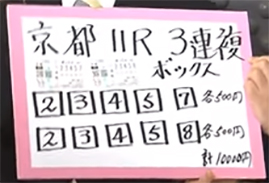 京都 11R 3連複
ボックス
2 3 4 5 7 各500円
2 3 4 5 8 各500円
計10000円